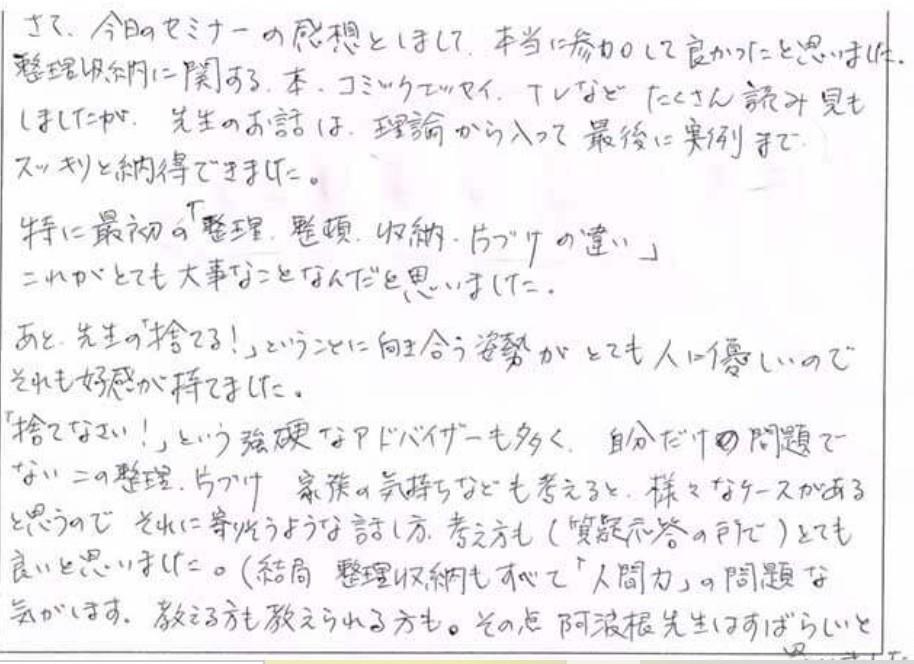 さて、今日のセミナーの感想としまして、本当に参加して良かったと思いました。
整理収納に関する、本、コミックエッセイ、TVなど たくさん読み見も
しましたが、先生のお話は、理論から入って最後に実例まで
スッキリと納得できました。
特に最初の「整理、整頓、収納、片づけの違い」
これがとても大事なことなんだと思いました。
あと、先生の「捨てる!」ということに向き合う姿勢がとても人に優しいので
それも好感が持てました。
「捨てなさい!」という強硬なアドバイザーも多く、自分だけの問題で
ないこの整理、片づけ 家族の気持ちなども考えると、様々なケースがある
と思うので それに寄りそうような話し方、考え方も(質疑応答の所で)とても
良いと思いました。(結局 整理収納もすべて「人間力」の問題な
気がします。教える方も教えられる方も。その点 阿波根先生はすばらしいと
思いました